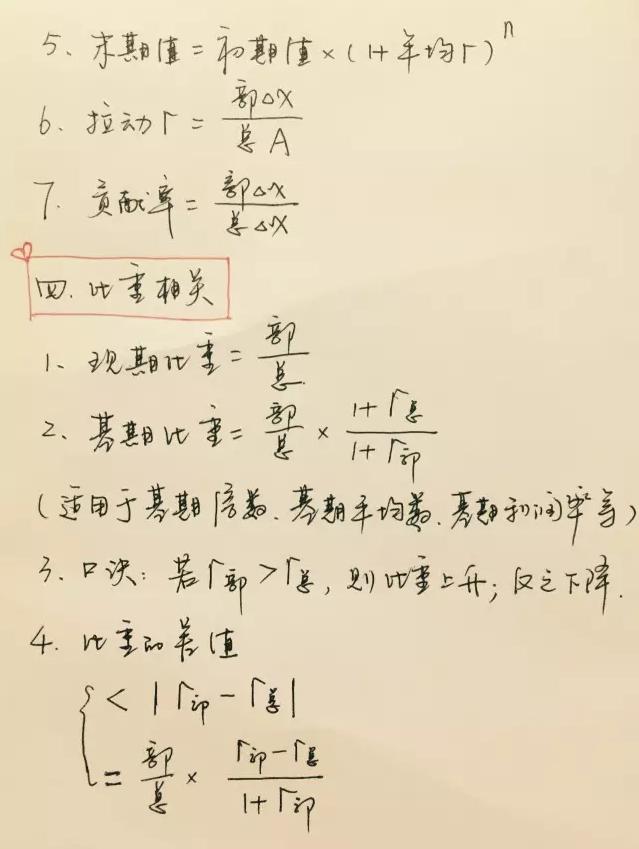 5、末期值=初期值×(1+年均r)^n
6、拉动r=部△X/总A
7、贡献率=部△X/总△X
四、比重相关
1、现期比重=部/总
2、基期比重=部/总×(1+r总)/(1+r部)
(适用于基期倍数、基期平均数、基期利润率等)
3、口诀:若r部>r总,则比重上升;反之下降.
4、比重的差值
<|r部-r总|
=部/总×(r部-r总)/(1+r部)